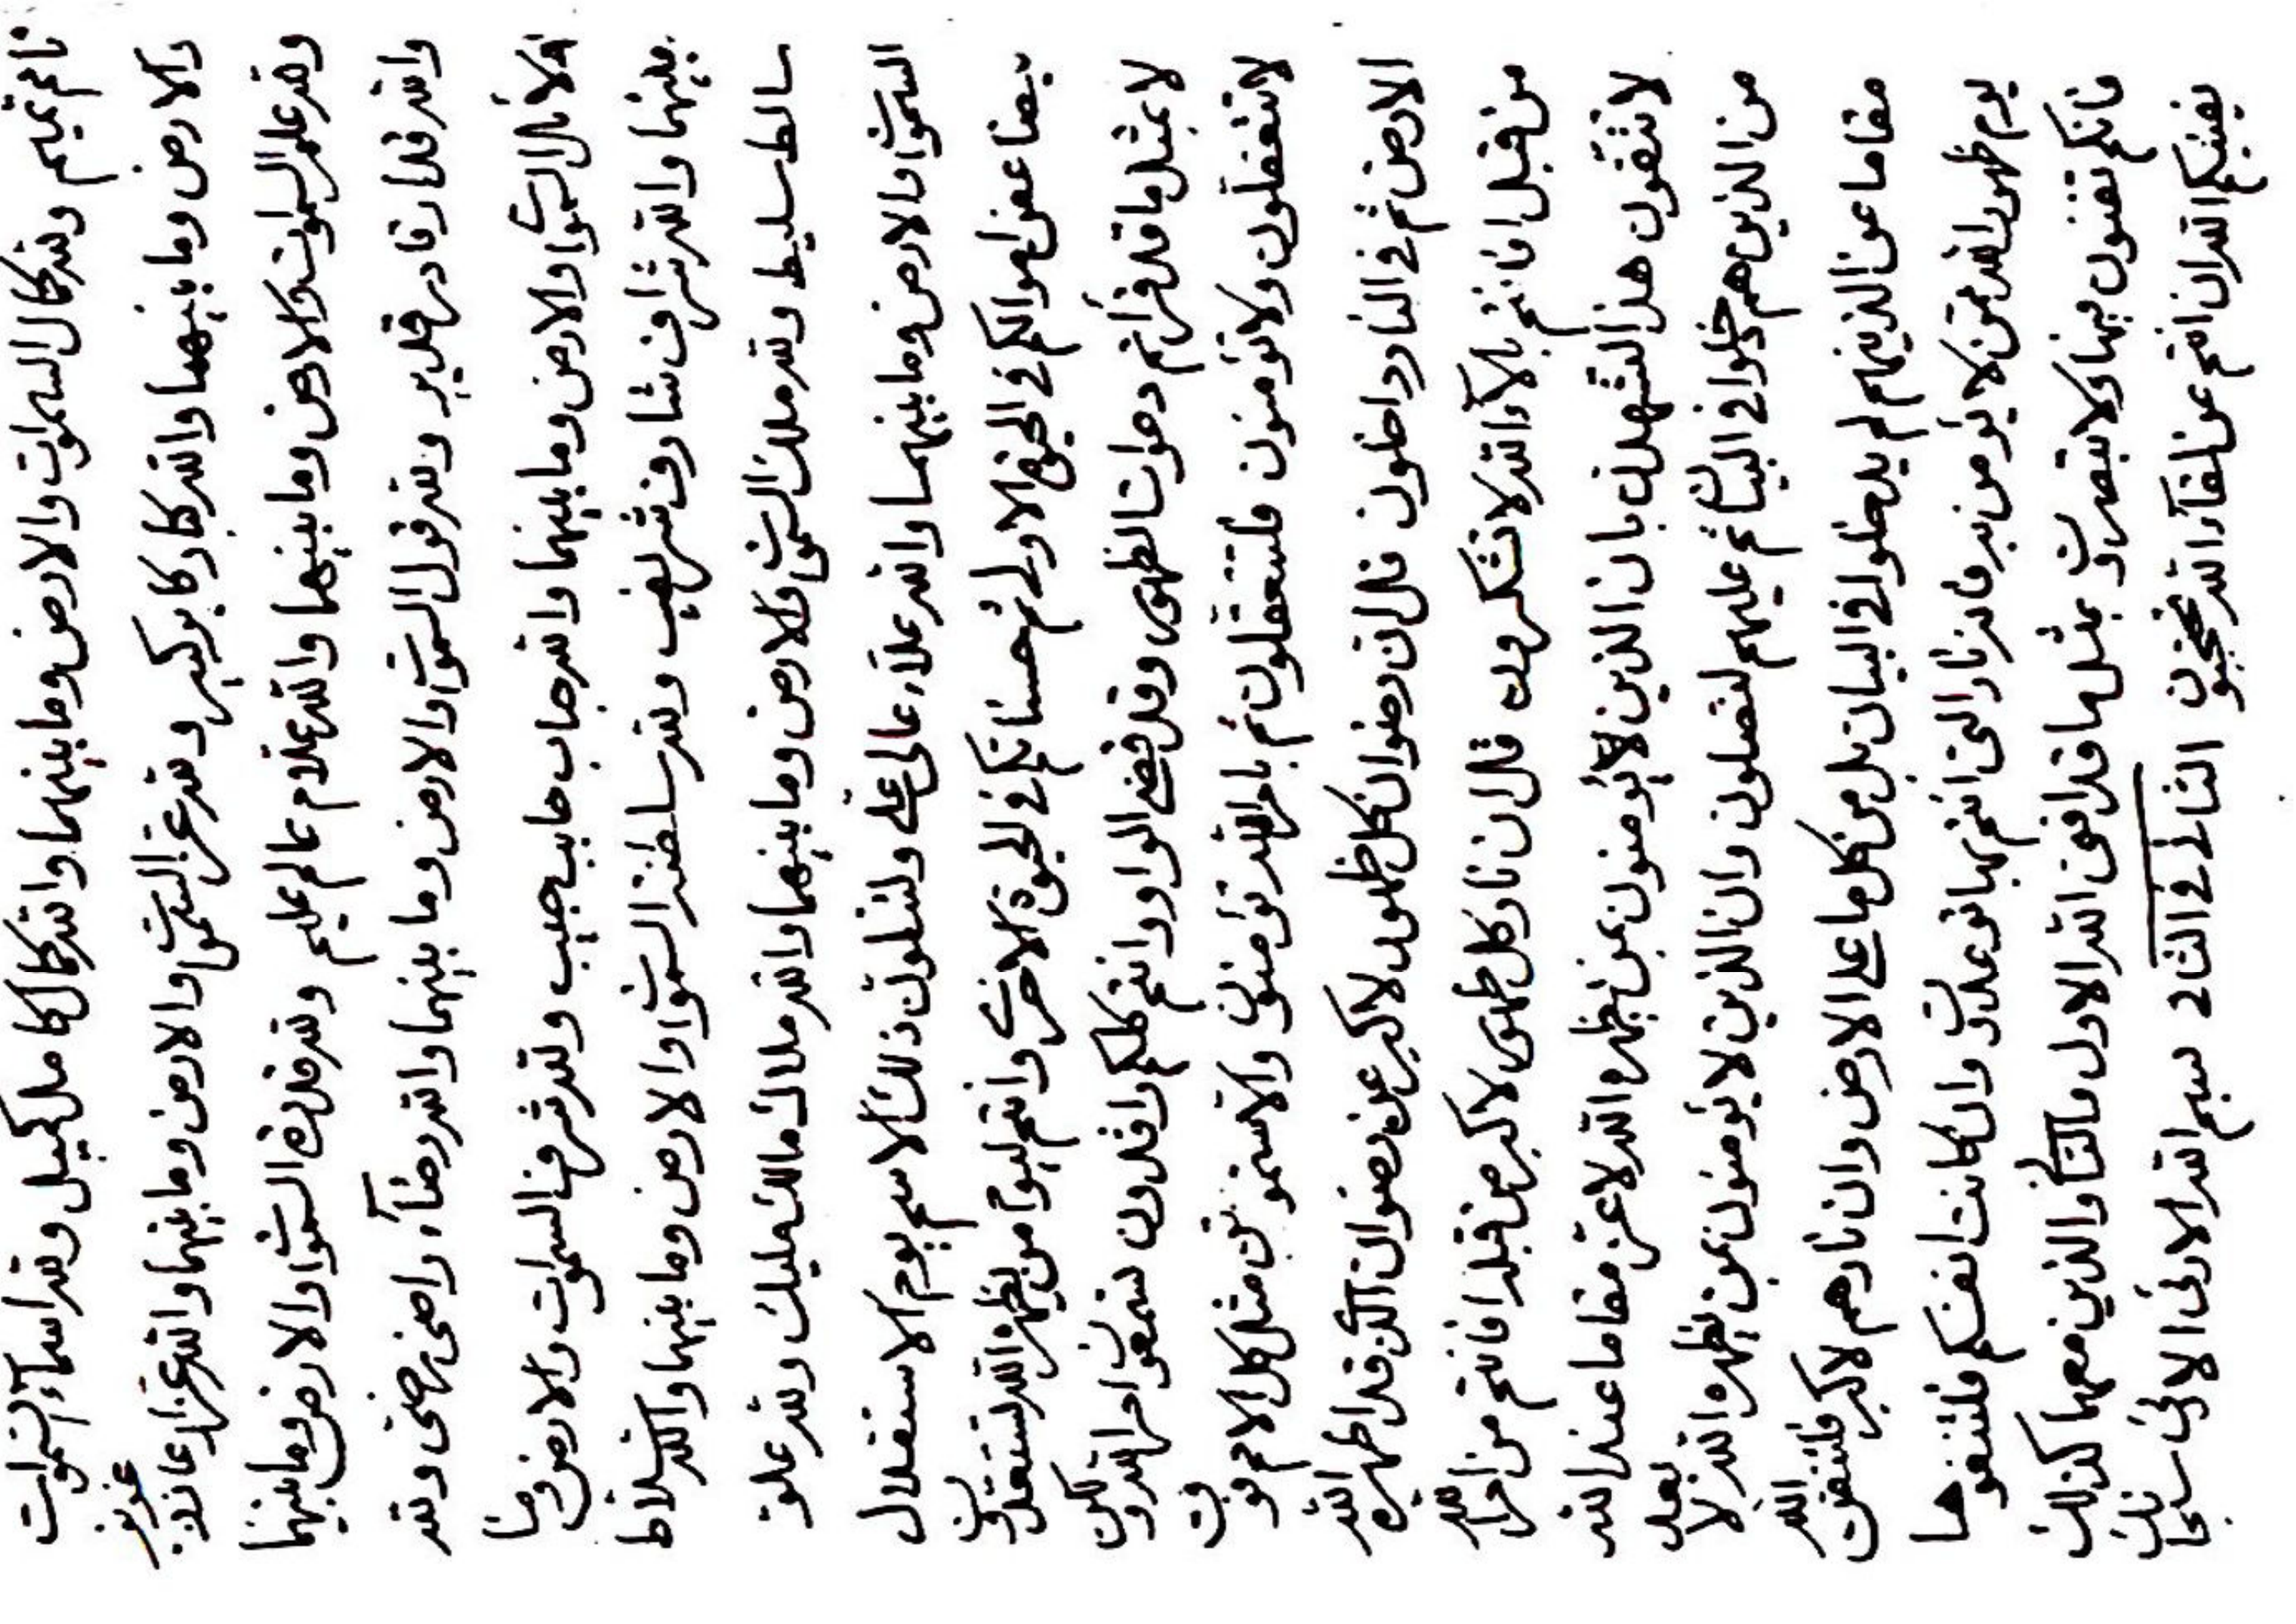 تامم تميم ولله كمال السموات والارض وما بينهما والله كمال كامل كميل ولله اسماء السموات
والارض وما بينهما والله كبار كابر كبير ولله عز السموات والارض وما بينهما والله عزاز عازز عزيز
ولله علم السموات والارض وما بينهما والله علام عالم عليم ولله قدرة السموات والارض وما بينهما
والله قدار قادر قدير ولله قول السموات والارض وما بينهما والله رضاء راضى رضى ولله
السموات والارض وما بينهما والله حباب حابب حبيب ولله شرف السموات والارض وما
بينهما والله شراف شارف شريف ولله سلطنة السموات والارض وما بينهما والله سلاط
سالط سليط ولله ملك السموات والارض وما بينهما والله ملاك مالك مليك ولله علو
السموات والارض وما بينهما والله علاء عالى على ولتتلون ذلك الاسم يوم الاستقلال
بضاعف اموالكم فى الحيوة الاولى ثم حسناتكم فى الحيوة الاخرى وانتم ليوم من يظهره الله لتستعدون
لا بمثل ما قد قرأتم دعوات الظهور وقد قضى الواو وانتم كلكم راقدون تسمعون امر الله ولكن
لا تتعقلون ولا تؤمنون فلتتعقلون ثم بامر الله تؤمنون والا ستموتن مثل كل الامم فوت
الارض ثم فى النار داخلون قل ان رضوان كل ظهور لاكبر عن رضوان الذى قد اظهره الله
من قبل افانتم بالاء الله لا تشكرون قل ان نار كل ظهور لاكبر من قبله افانتم من امر الله
لا تتقون هذا لتشهدن بان الذين لا يؤمنون بمن يظهره الله لاعز مقاما عند الله
من الذين هم دخلوا فى البيان ثم عليهم لتصلون وان الذين لا يؤمنون بمن يظهره الله لا بعد
مقاما عن الذينهم لم يدخلوا فى البيان بل من كل ما على الارض وان نارهم لاكبر فلتتقون الله
يوم ظهور الله ممن لا يؤمن به فانه نار التى انتم بها توعدون وان كانت انفسكم فلتتقوها
فانكم تفنون فيها ولا تبصرون بمثل ما قد افنى الله الاول والثانى والذين معهما كذلك
يفنيكم الله ان انتم عن لقاء الله تحتجبون الثانى فى الثانى بسم الله الابهى الابهى سبحانك